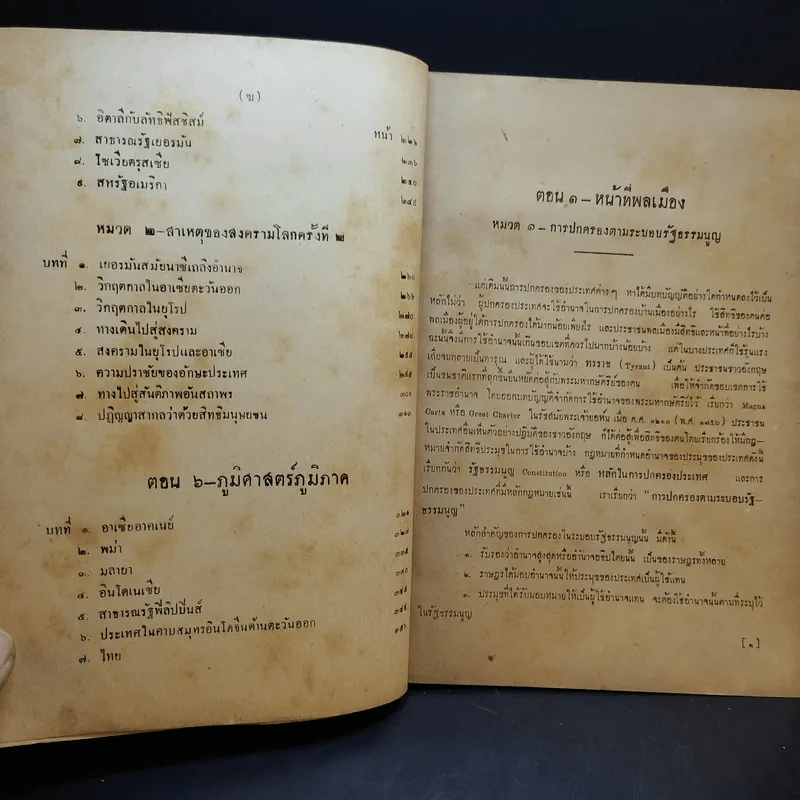 (ฆ)
หน้า
๖. อิตาลีกับลัทธิฟัสซิสม์ ๒๒๒
๗. สาธารณรัฐเยอรมัน ๒๓๖
๘. โซเวียตรุสเซีย ๒๔๓
๙. สหรัฐอเมริกา ๒๔๙
หมวด ๒-สาเหตุของสงครามโลกครั้งที่ ๒
บทที่ ๑. เยอรมันสมัยนาซีเถลิงอำนาจ ๒๖๐
๒. วิกฤตกาลในอาเซียตะวันออก ๒๖๖
๓. วิกฤตกาลในยุโรป ๒๗๐
๔. ทางเดินไปสู่สงคราม ๒๗๘
๕. สงครามในยุโรปและอาเซีย
๖. ความปราชัยของอักษะประเทศ
๗. ทางไปสู่สันติภาพอันสถาพร ๓๐๐
๘. ปฏิญญาสากลว่าด้วยสิทธิมนุษยชน ๓๑๐
ตอน ๖-ภูมิศาสตร์ภูมิภาค
บทที่ ๑. อาเซียอาคเนย์ ๓๒๑
๒. พม่า ๓๒๗
๓. มลายา ๓๓๕
๔. อินโดเนเซีย ๓๔๐
๕. สาธารณรัฐฟิลิปปินส์
๖. ประเทศในคาบสมุทรอินโดจีนด้านตะวันออก
๗. ไทย
ตอน ๑ – หน้าที่พลเมือง
หมวด ๑ – การปกครองตามระบอบรัฐธรรมนูญ
แต่เดิมนั้นการปกครองของประเทศต่าง ๆ หาได้มีบทบัญญัติอย่างใดกำหนดลงไว้เป็น
หลักไม่ว่า ผู้ปกครองประเทศจะใช้อำนาจในการปกครองบ้านเมืองอย่างไร ใช้สิทธิของตนต่อ
พลเมืองผู้อยู่ใต้การปกครองได้มากน้อยเพียงไร และประชาชนพลเมืองมีสิทธิและหน้าที่อย่างไรบ้าง
ฉะนั้นจึงมีการใช้อำนาจนั้นเกินขอบเขตที่ควรไปมากบ้างน้อยบ้าง แต่ในบางประเทศก็ใช้รุนแรง
เสียจนกลายเป็นทารุณ และผู้ใช้ได้นามว่า ทรราช (Tyrant) เป็นต้น ประชาชนชาวอังกฤษ
เป็นชนชาติแรกที่ลุกขึ้นยืนหยัดต่อสู้กับพระมหากษัตริย์ของตน เพื่อให้จำกัดขอบเขตการใช้
พระราชอำนาจ โดยออกบทบัญญัติจำกัดการใช้อำนาจของพระมหากษัตริย์ไว้ เรียกว่า Magna
Carta หรือ Great Charter ในรัชสมัยพระเจ้ายอห์น เมื่อ ค.ศ. ๑๒๑๓ (พ.ศ. ๑๗๕๖) ประชาชน
ในประเทศอื่นเห็นตัวอย่างปฏิบัติของชาวอังกฤษ ก็ได้ต่อสู้เพื่อสิทธิของตนโดยเรียกร้องให้มีกฎ-
หมายจำกัดสิทธิประมุขในการใช้อำนาจบ้าง กฎหมายที่กำหนดอำนาจของประมุขของประเทศดังนี้
เรียกกันว่า รัฐธรรมนูญ Constitution หรือ หลักในการปกครองประเทศ และการ
ปกครองของประเทศที่มีหลักกฎหมายเช่นนี้ เราเรียกว่า “การปกครองตามระบอบรัฐ-
ธรรมนูญ”
หลักสำคัญของการปกครองในระบอบรัฐธรรมนูญนั้น มีดังนี้
๑. รับรองว่าอำนาจสูงสุดหรืออำนาจอธิปไตยนั้น เป็นของราษฎรทั้งหลาย
๒. ราษฎรได้มอบอำนาจนั้นให้ประมุขของประเทศเป็นผู้ใช้แทน
๓. ประมุขที่ได้รับมอบหมายให้เป็นผู้ใช้อำนาจแทน จะต้องใช้อำนาจนั้นตามที่ระบุไว้
ในรัฐธรรมนูญ
[๑]